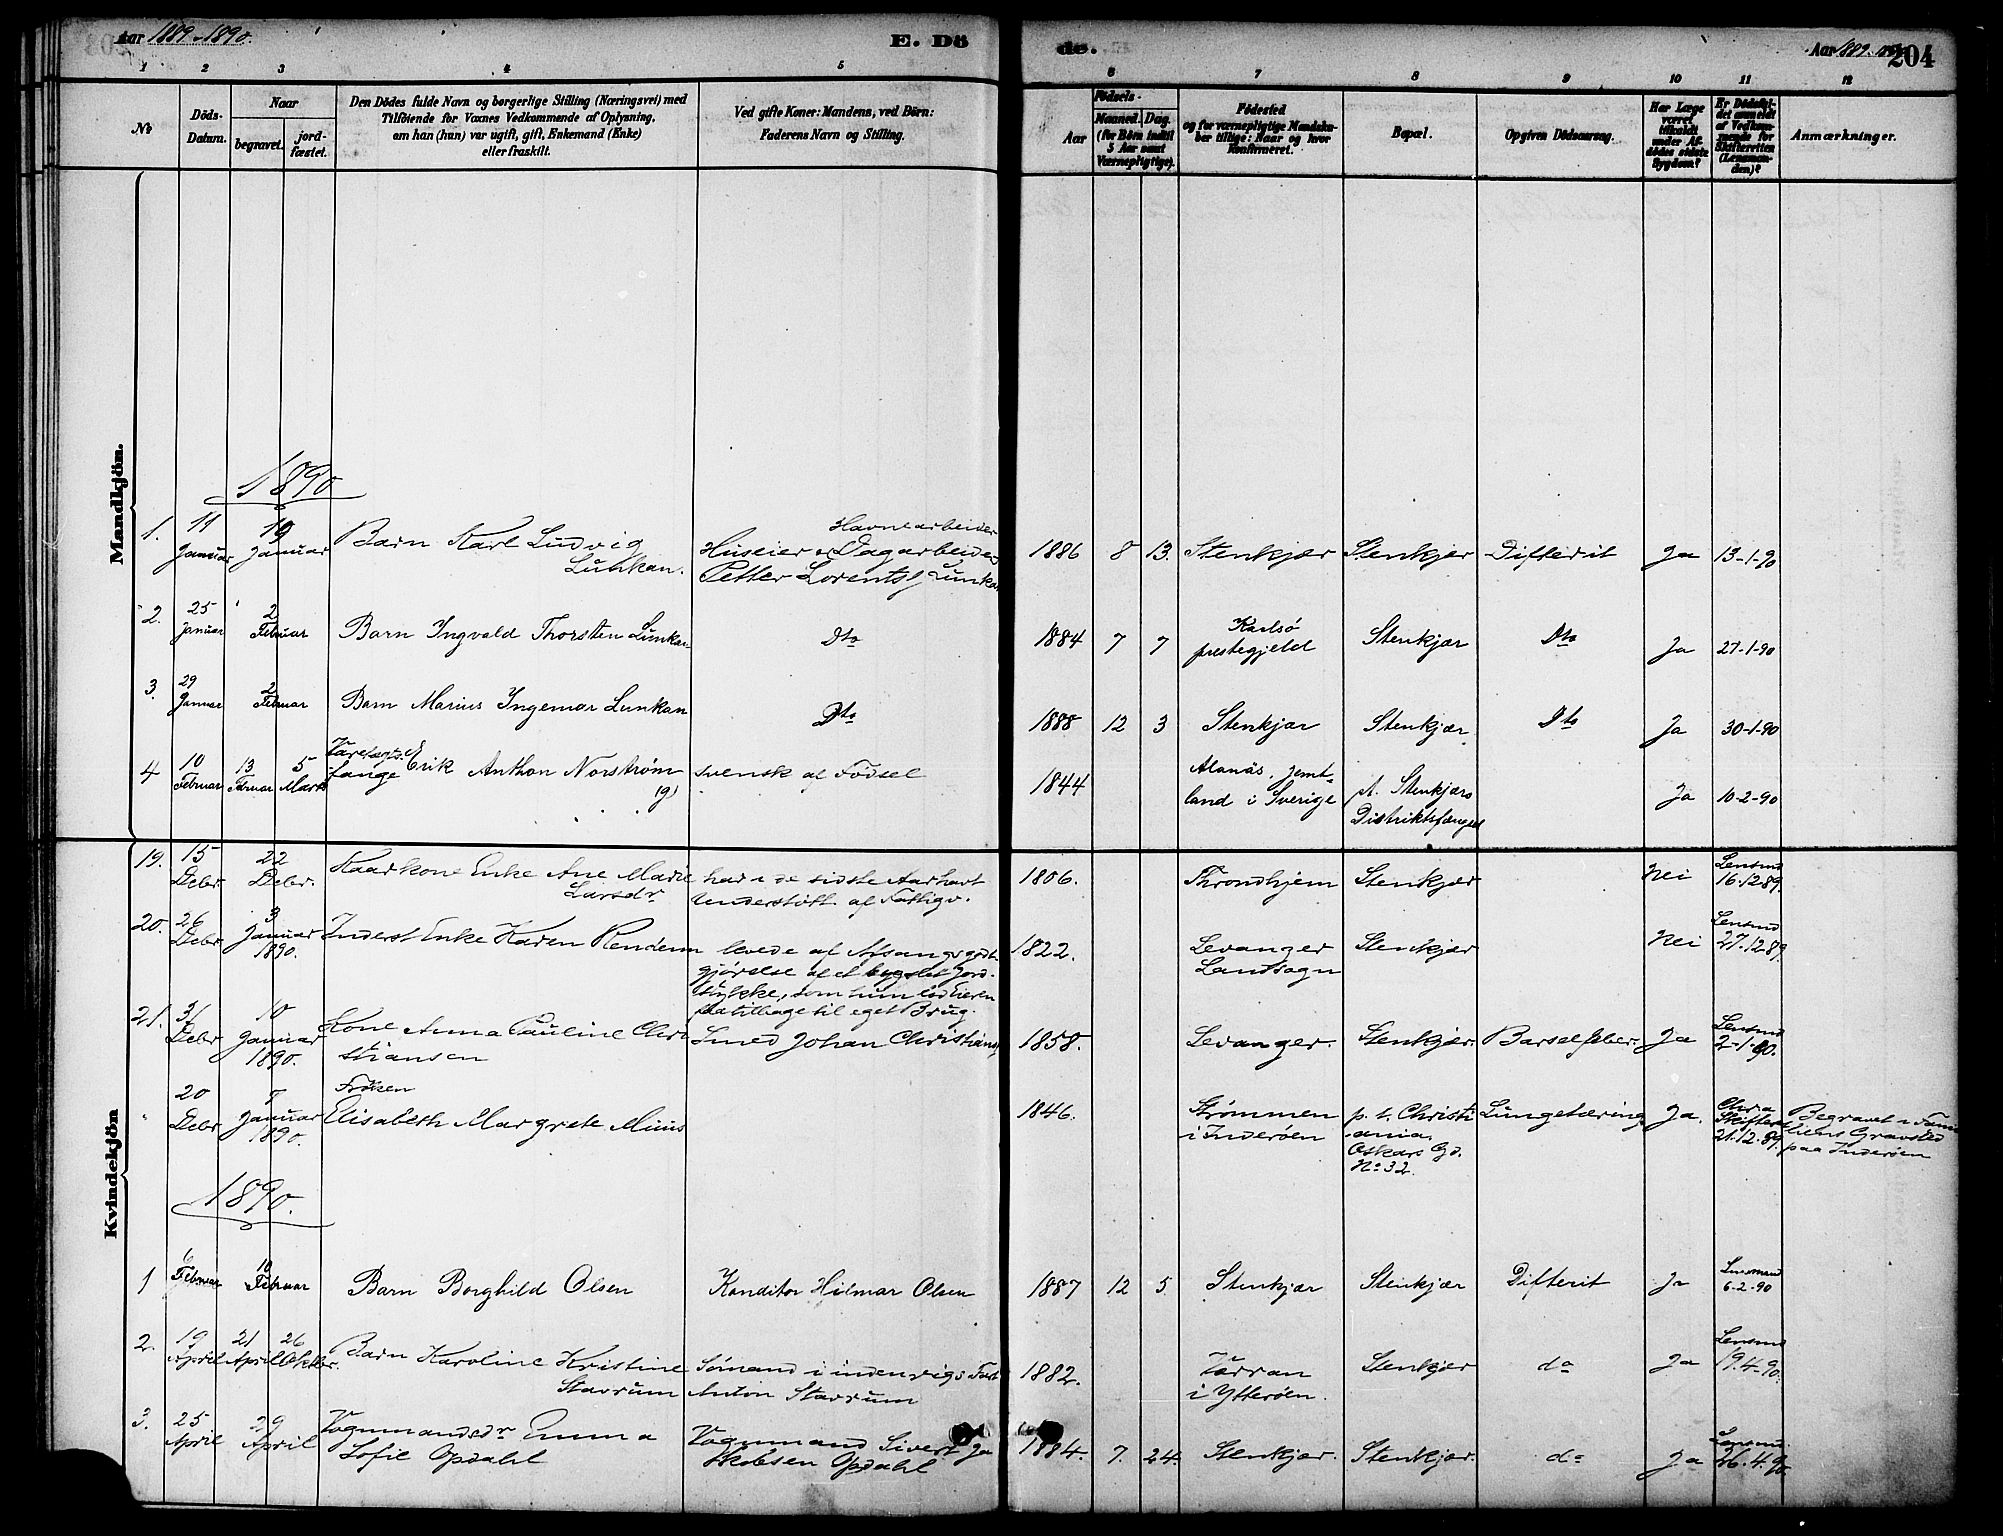 Aar 1889-1890.
E. Dö
de.
Aar 1889-1890
204
1 2 3 4 5
6 7 8 9 10 11 12
No
Döds-Datum.
Naar
begravet.
jordfæstet.
Den Dödes fulde Navn og borgerlige Stilling (Næringsvei) med
Tilföiende for Voxnes Vedkommende af Oplysning,
om han (hun) var ugift, gift, Enkemand (Enke)
eller fraskilt.
Ved gifte Koner: Mandens, ved Börn:
Faderens Navn og Stilling.
Födsels-
Aar
Maaned. Dag.
(for Börn indtil
5 Aar samt
Værnepligtige).
Födested
og for værnepligtige Mandskaber tillige: Naar og hvor
konfirmeret.
Bopæl.
Opgiven Dödsaarsag.
Har Læge
været
tilkaldt
under Afdödes sidste
Sygdom?
Er Dödsfaldet anmeldt
af Vedkommende for
Skifteretten
(Lensmanden)?
Anmærkninger.
Mandkjön.
1890
1. 11 Januar 19 Januar Barn Karl Ludvig
Lunkan.
Havnearbeider
Huseier og Dagarbeider
Petter Lorents Lunkan
1886 8 13. Stenkjær Stenkjær Difterit Ja 13-1-90
2. 25 Januar 2 Februar Barn Ingvald Thorsten Lunkan Dto 1884 7 7 Karlsö
prestegjeld Stenkjær Dto Ja 27-1-90
3. 29 Januar 2 Februar Barn Marius Ingemar Lunkan Dto 1888 12 3 Stenkjær Stenkjær Dto Ja 30-1-90
4 10 Februar 13 Februar 5 Marts Varetægts-
fange Erik Anthon Norström
(g)
svensk af Födsel 1844 Alanäs, Jemt-
land i Sverige p.t. Stenkjærs
Distriktsfængsel Ja 10-2-90
Kvindekjön
19. 15 Debr 22 Debr. Kaarkone Enke Ane Marie
Larsdr
har i de sidste Aar havt
Understött. af Fattigv.
1806. Throndhjem Stenkjær Nei Lensmd
16.12.89.
20. 26 Debr 3 Januar 1890. Inderst Enke Karen Rendem
levede af Afsangsgodt-
gjörelse af et bygslet Jord-
stykke, som hun lod Eieren
faa tilbage til eget Brug.
1822. Levanger
Landsogn Stenkjær Nei Lensmd
27.12.89.
21. 31 Debr 10 Januar 1890. Kone Anna Pauline Chri
stiansen Smed Johan Christians. 1858. Levanger. Stenkjær. Barselfeber. Ja Lensmd
2-1-90.
" 20 Debr 7 Januar 1890. Fröken
Elisabeth Margrete Müus 1846. Strømmen
i Inderöen p.t. Christi
ania
Oskars Gd.
No 32. Lungetæring Ja. Chra
Skifteret
21.12.89. Begravet i Fami
liens Gravsted
paa Inderöen
1890.
1 6 Februar 10 Februar Barn Borghild Olsen Konditor Hilmar Olsen 1887 12 5 Stenkjær Stenkjær Difterit Ja Lensmand
6-2-90
2. 19 April 21 April 26 Oktbr. Barn Karoline Kristine
Stavrum Sömand i indenrigs Fart
Anton Stavrum 1882. Værran
i Ytteröen. Stenkjær do Ja Lensmd
19.4-90.
3. 25 April 29 April Vognmandsdr Emma
Sofie Opdahl Vognmand Sivert Ja
kobsen Opdahl 1884. 7. 24. Stenkjær. Stenkjær. do Ja Lensmd.
26.4.90.